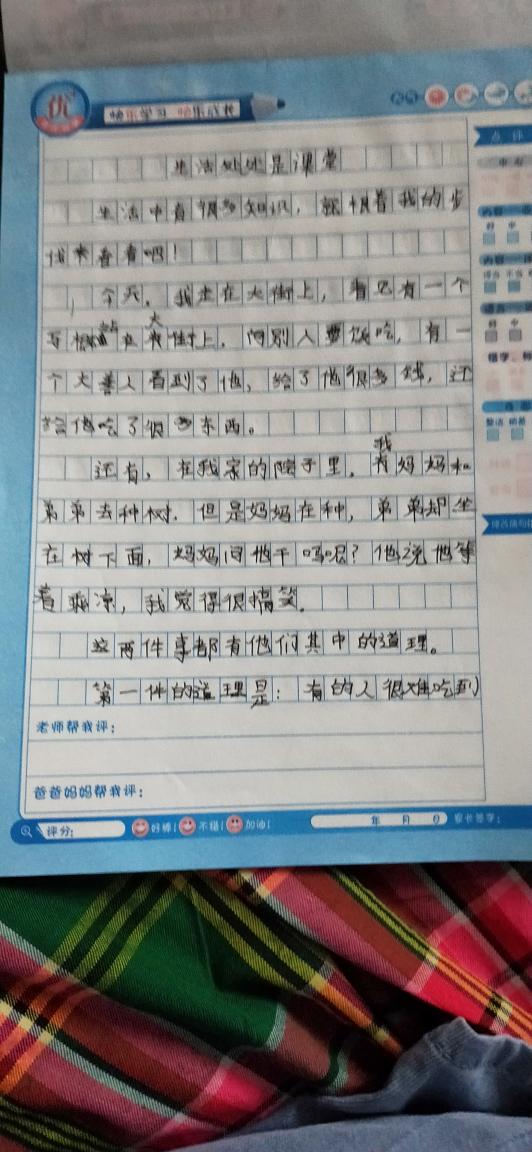 优
快乐学习 快乐成长
点评
生活处处是课堂
生活中有很多知识，就跟着我的步
伐来看看吧！
今天，我走在大街上，看见有一个
站 大
在 街上，问别人要饭吃，有一
个大善人看到了他，给了他很多钱，还
给他吃了很多东西。
我
还有，在我家的院子里，有妈妈和
弟弟去种树，但是妈妈在种，弟弟却坐
在树下面，妈妈问他干吗呢？他说他等
着乘凉，我觉得很搞笑。
这两件事都有他们其中的道理。
第一件的道理是：有的人很难吃到
老师帮我评：
爸爸妈妈帮我评：
评分：
好棒！ 不错！ 加油！
年 月 日
家长签字：